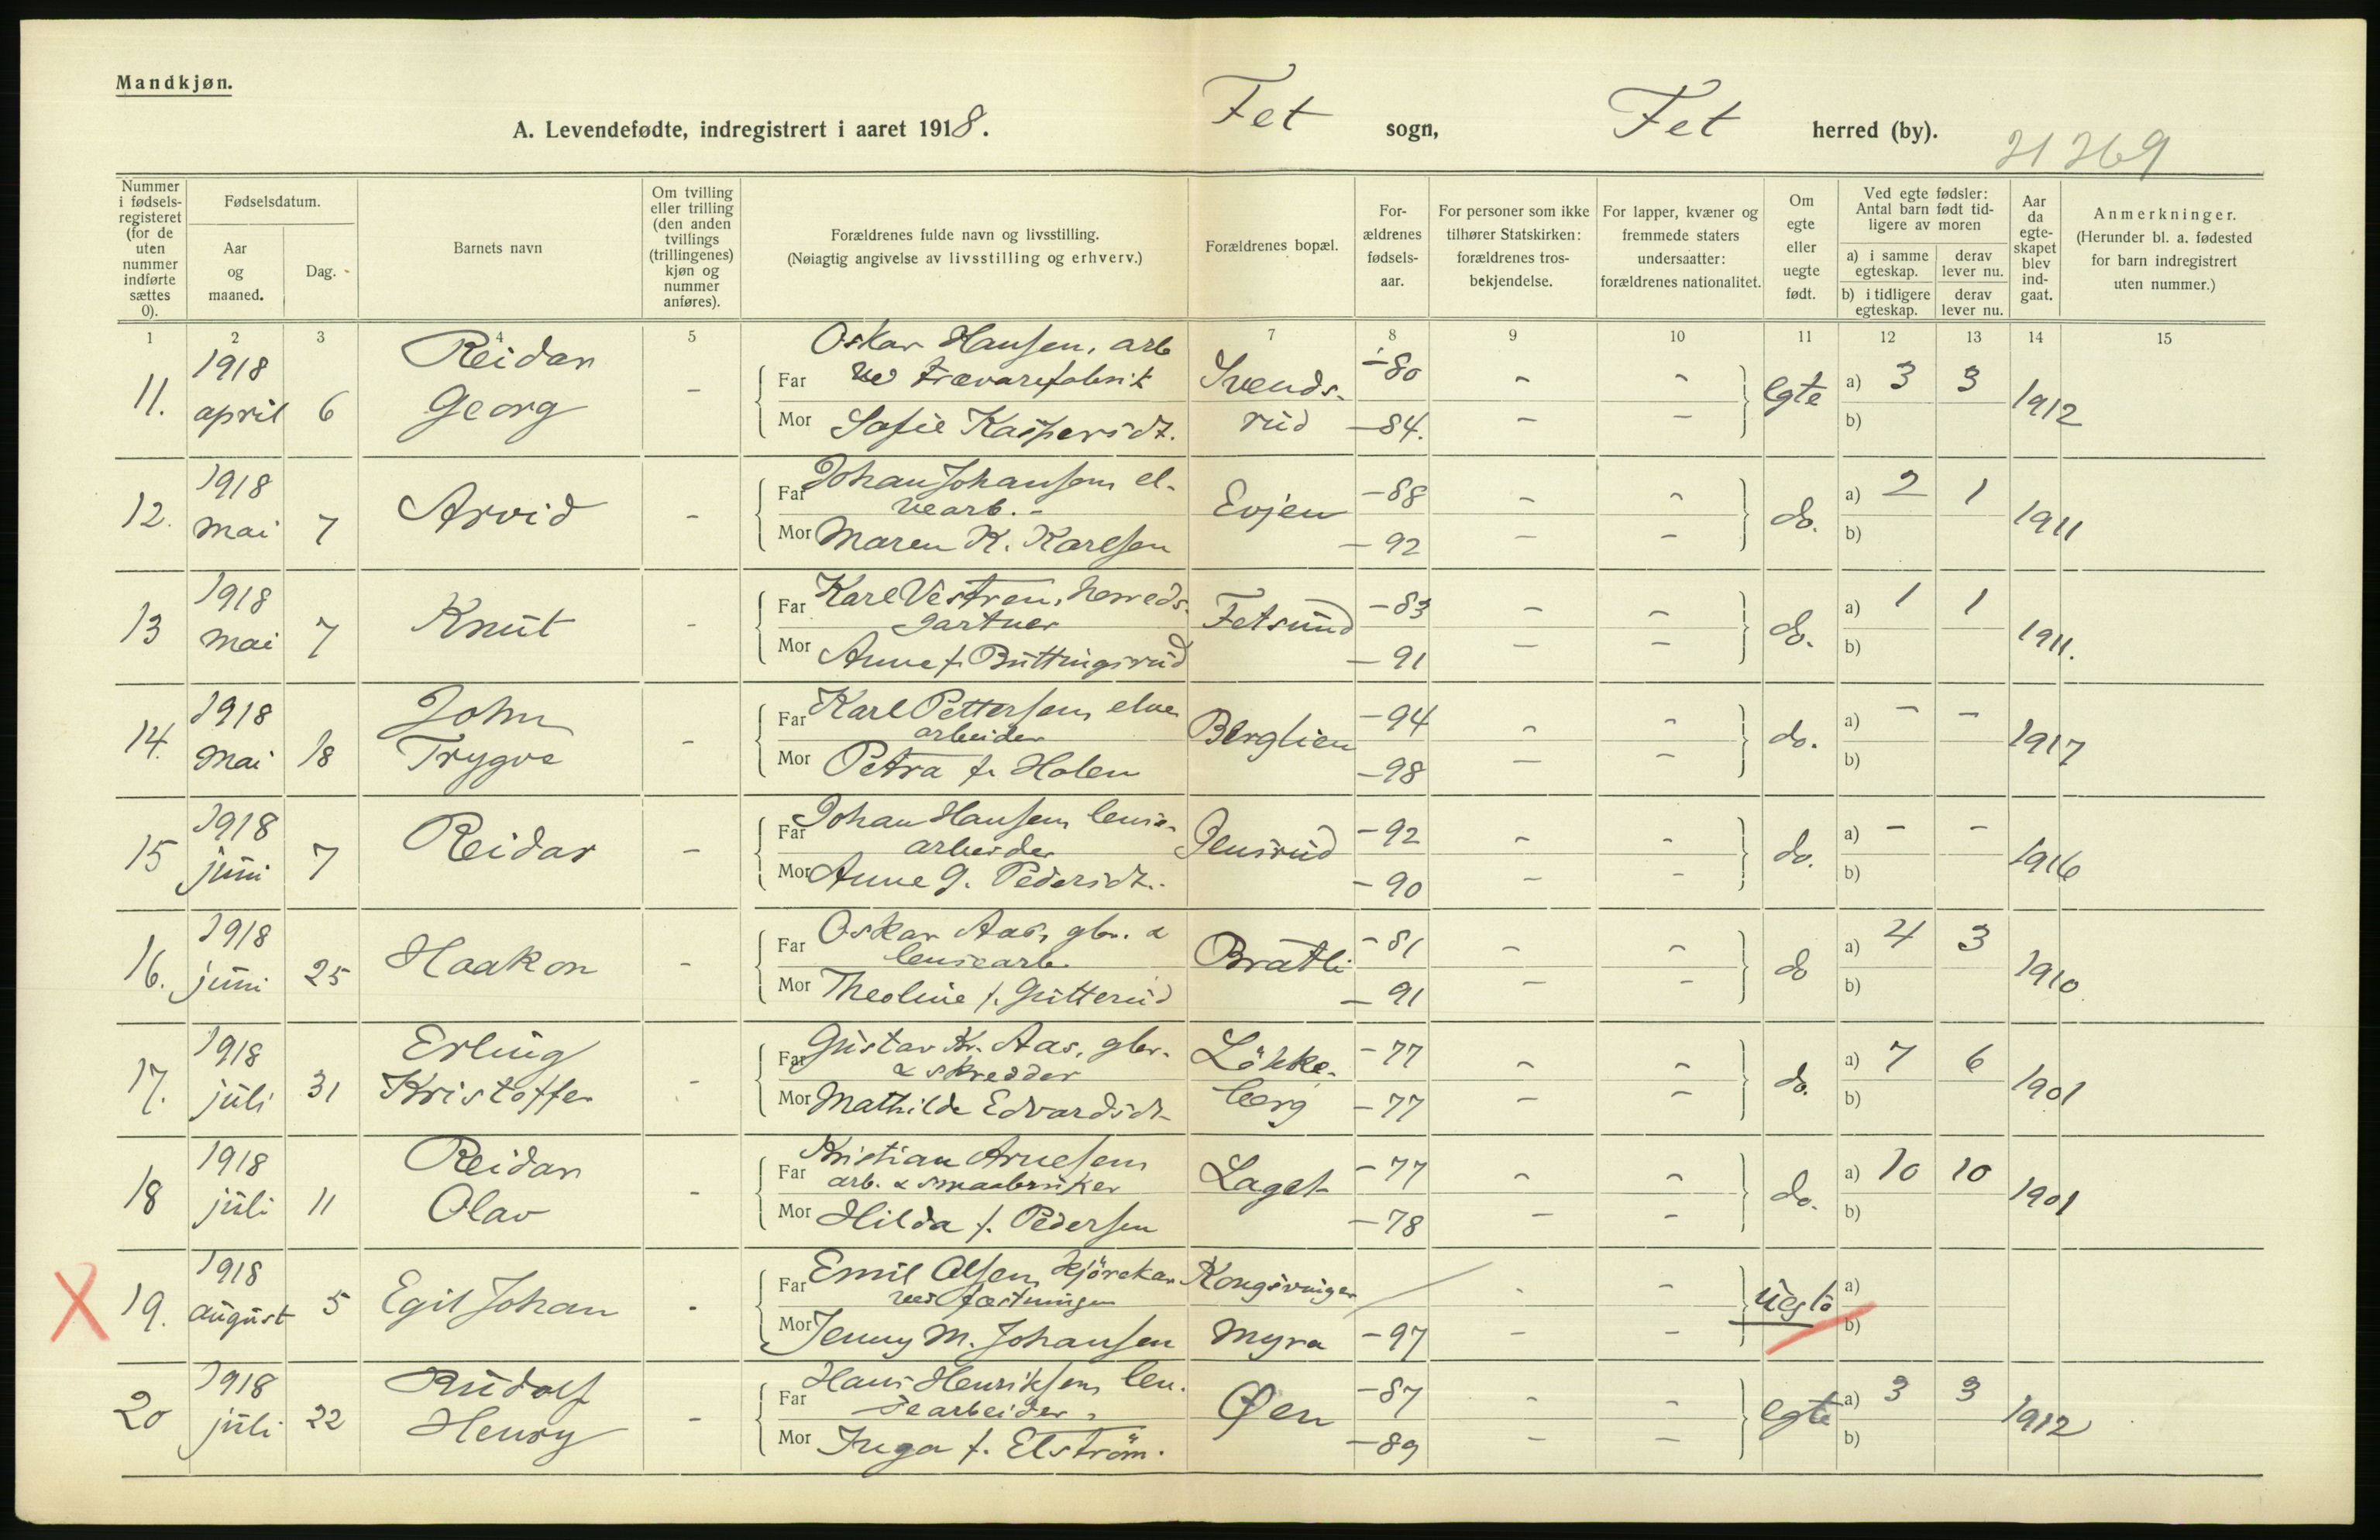 Mandkjøn.
A. Levendefødte, indregistrert i aaret 1918. Fet sogn, Fet herred (by).
21 269
Nummer i fødselsregisteret (for de uten nummer indførte sættes 0).
Fødselsdatum.
Aar og maaned.
Dag.
Barnets navn
Om tvilling eller trilling (den anden tvillings (trillingenes) kjøn og nummer anføres).
Forældrenes fulde navn og livsstilling.
(Nøiagtig angivelse av livsstilling og erhverv.)
Forældrenes bopæl.
Forældrenes fødselsaar.
For personer som ikke tilhører Statskirken: forældrenes trosbekjendelse.
For lapper, kvæner og fremmede staters undersaatter: forældrenes nationalitet.
Om egte eller uegte født.
Ved egte fødsler: Antal barn født tidligere av moren
a) i samme egteskap.
derav lever nu.
b) i tidligere egteskap.
derav lever nu.
Aar da egteskapet blev indgaat.
Anmerkninger.
(Herunder bl. a. fødested for barn indregistrert uten nummer.)
1 2 3 4 5 7 8 9 10 11 12 13 14 15
11. 1918 april 6 Reidar Georg -
Far Oskar Hansen, arb ved trævarefabrik Svendsrud -80 - - egte a) 3 3 1912
Mor Sofie Kaspersdt. -84. - - b)
12. 1918 mai 7 Arvid -
Far Johan Johansen, elvearb. - Evjen -88 - - do. a) 2 1 1911
Mor Maren K. Karlsen -92 - - b)
13 1918 mai 7 Knut -
Far Karl Vestren, herredsgartner Fetsund -83 - - do. a) 1 1 1911.
Mor Anne f. Buttingsrud -91 - - b)
14. 1918 mai 18 John Trygve -
Far Karl Pettersen, elvearbeider Berglien -94 - - do. a) - - 1917
Mor Petra f. Holen -98 - - b)
15 1918 juni 7 Reidar -
Far Johan Hansen, lensearbeider Jensrud -92 - - do. a) - - 1916
Mor Anne G. Pedersdt. -90 - - b)
16. 1918 juni 25 Haakon -
Far Oskar Aas, gbr. & lensearb. Bratli -81 - - do a) 4 3 1910
Mor Theoline f. Gutterud -91 - - b)
17. 1918 juli 31 Erling Kristoffer -
Far Gustav Kr. Aas, gbr. & skredder Lökkeberg -77 - - do. a) 7 6 1901
Mor Mathilde Edvardsdt -77 - - b)
18 1918 juli 11 Reidar Olav -
Far Kristian Arnesen arb. & smaabruker Laget -77 - - do. a) 10 10 1901
Mor Hilda f. Pedersen -78 - - b)
X 19. 1918 august 5 Egil Johan -
Far Emil Olsen, kjörekar ved fæstningen Kongsvinger - - uegte a)
Mor Jenny M. Johansen Myra -97 - - b)
20 1918 juli 22 Rudolf Henry -
Far Hans Henriksen, lensearbeider, Øen -87 - - egte a) 3 3 1912
Mor Inga f. Elström. -89 - - b)